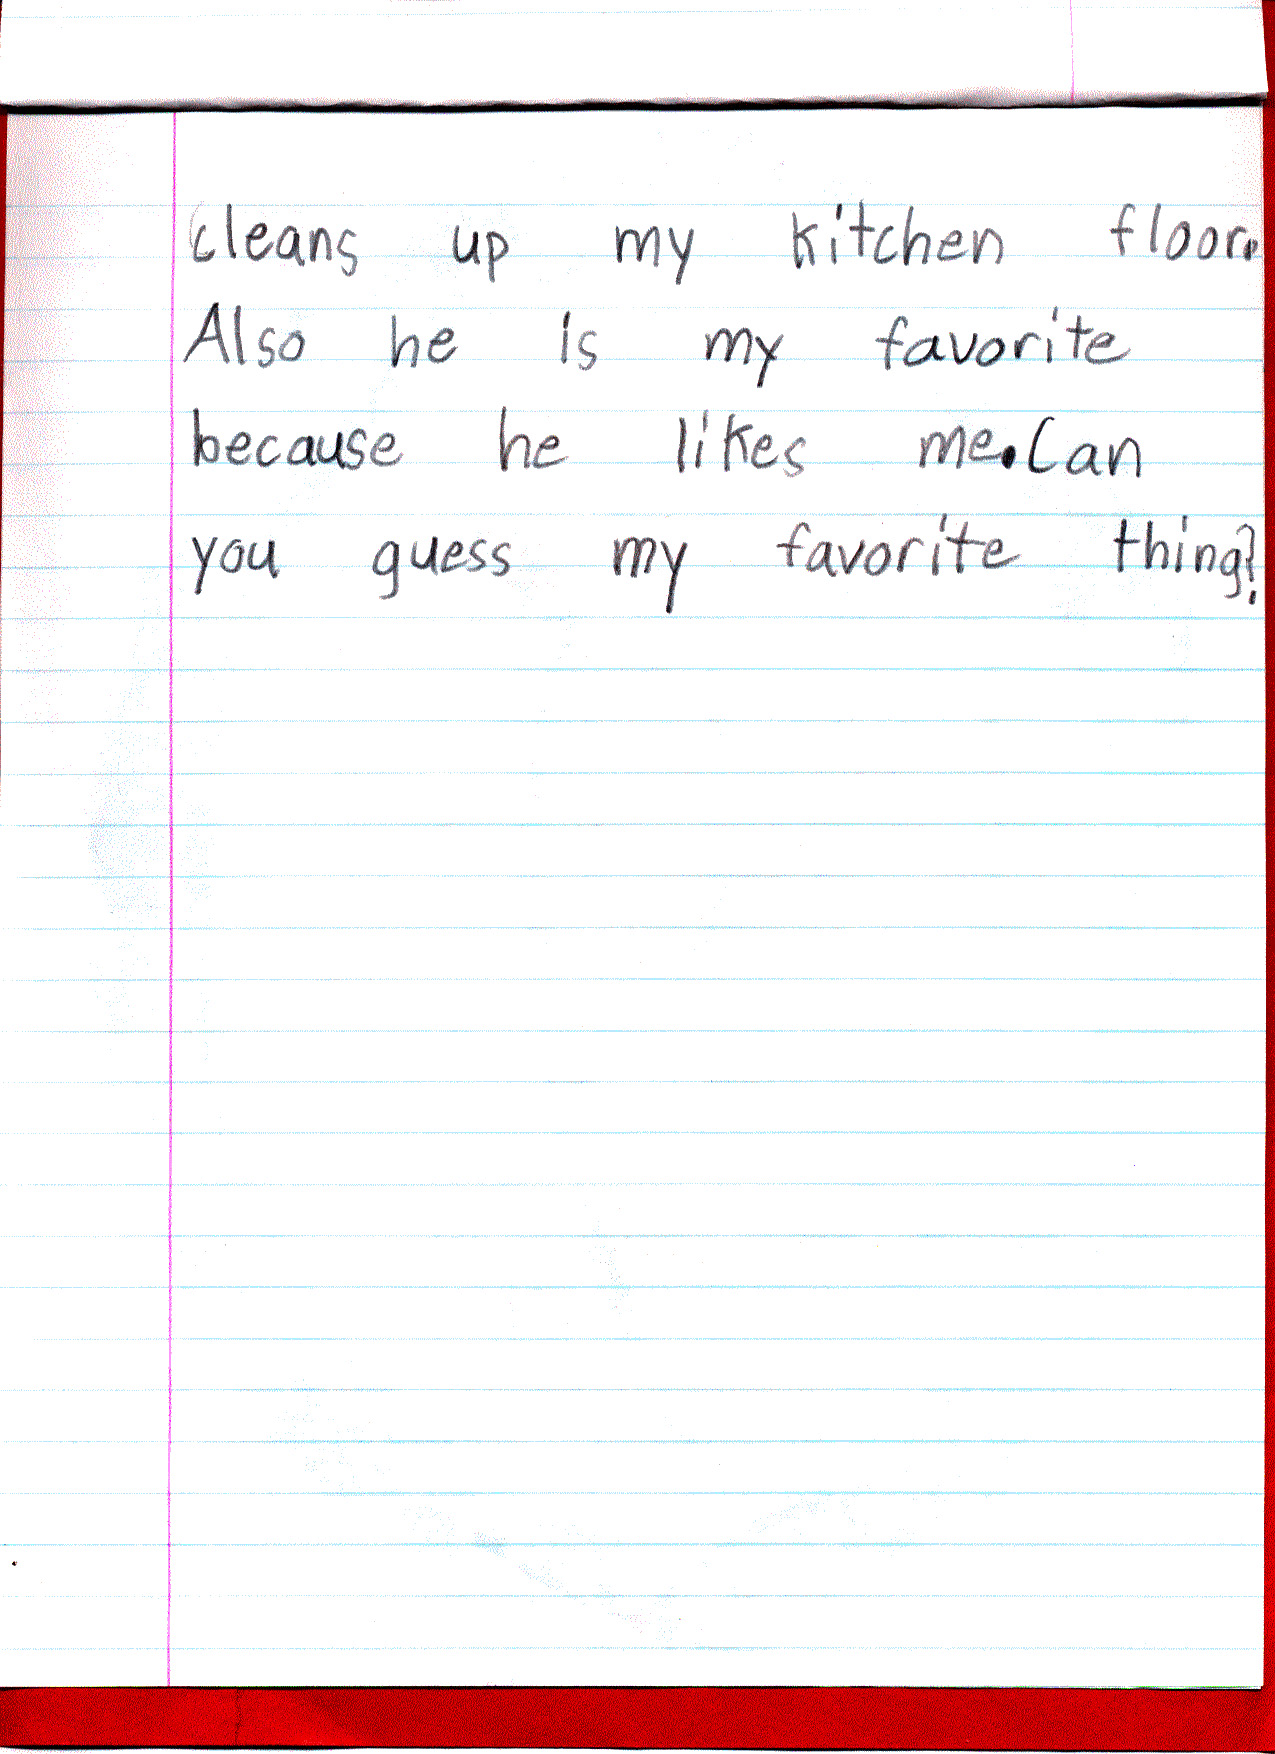 cleans up my kitchen floor.
Also he is my favorite
because he likes me. Can
you guess my favorite thing?